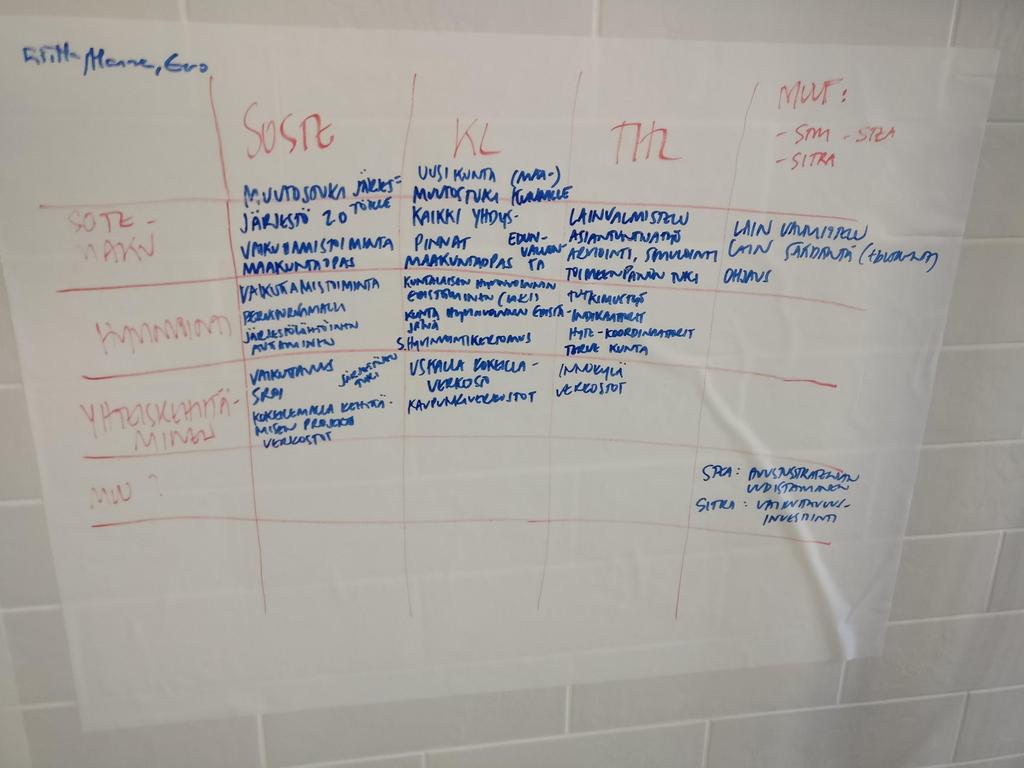 SOSTE
KL
THL
MUUT:
- STM - STEA
- SITRA
SOTE-
MAKU
MUUTOSTUKI JÄRJES-
TÖILLE
JÄRJESTÖ 2.0
VAIKUTTAMISTOIMINTA
MAAKUNTAOPAS
UUSI KUNTA (MAA-)
MUUTOSTUKI KUNNILLE
KAIKKI YHDYS-
PINNAT EDUN-
MAAKUNTAOPAS VALVON-
TA
LAINVALMISTELU
ASIANTUNTIJATYÖ
ARVIOINTI, SIMULOINTI
TOIMEENPANON TUKI
LAIN VALMISTELU
LAIN SÄÄDÄNTÄ
OHJAUS
HYVINVOINTI
VAIKUTTAMISTOIMINTA
JÄRJESTÖLÄHTÖINEN
AUTTAMINEN
KUNTALAISEN HYVINVOINNIN
EDISTÄMINEN (LAKI)
KUNTA HYVINVOINNIN EDISTÄ-
JÄNÄ
S. HYVINVOINTIKERTOMUS
TUTKIMUSTYÖ
-INDIKAATTORIT
HYTE-KOORDINAATTORIT
TERVE KUNTA
YHTEISKEHITTÄ-
MINEN
VAIKUTTAVUUS
SROI
JÄRJESTÖJEN
TUKI
KOKEILEMALLA KEHITTÄ-
MISEN PROJEKTI
VERKOSTOT
USKALLA KOKEILLA-
-VERKOSTO
KAUPUNKIVERKOSTOT
INNOKYLÄ
VERKOSTOT
MUU?
STEA: AVUSTUSSTRATEGIAN
UUDISTAMINEN
SITRA: VAIKUTTAVUUS-
INVESTOINTI